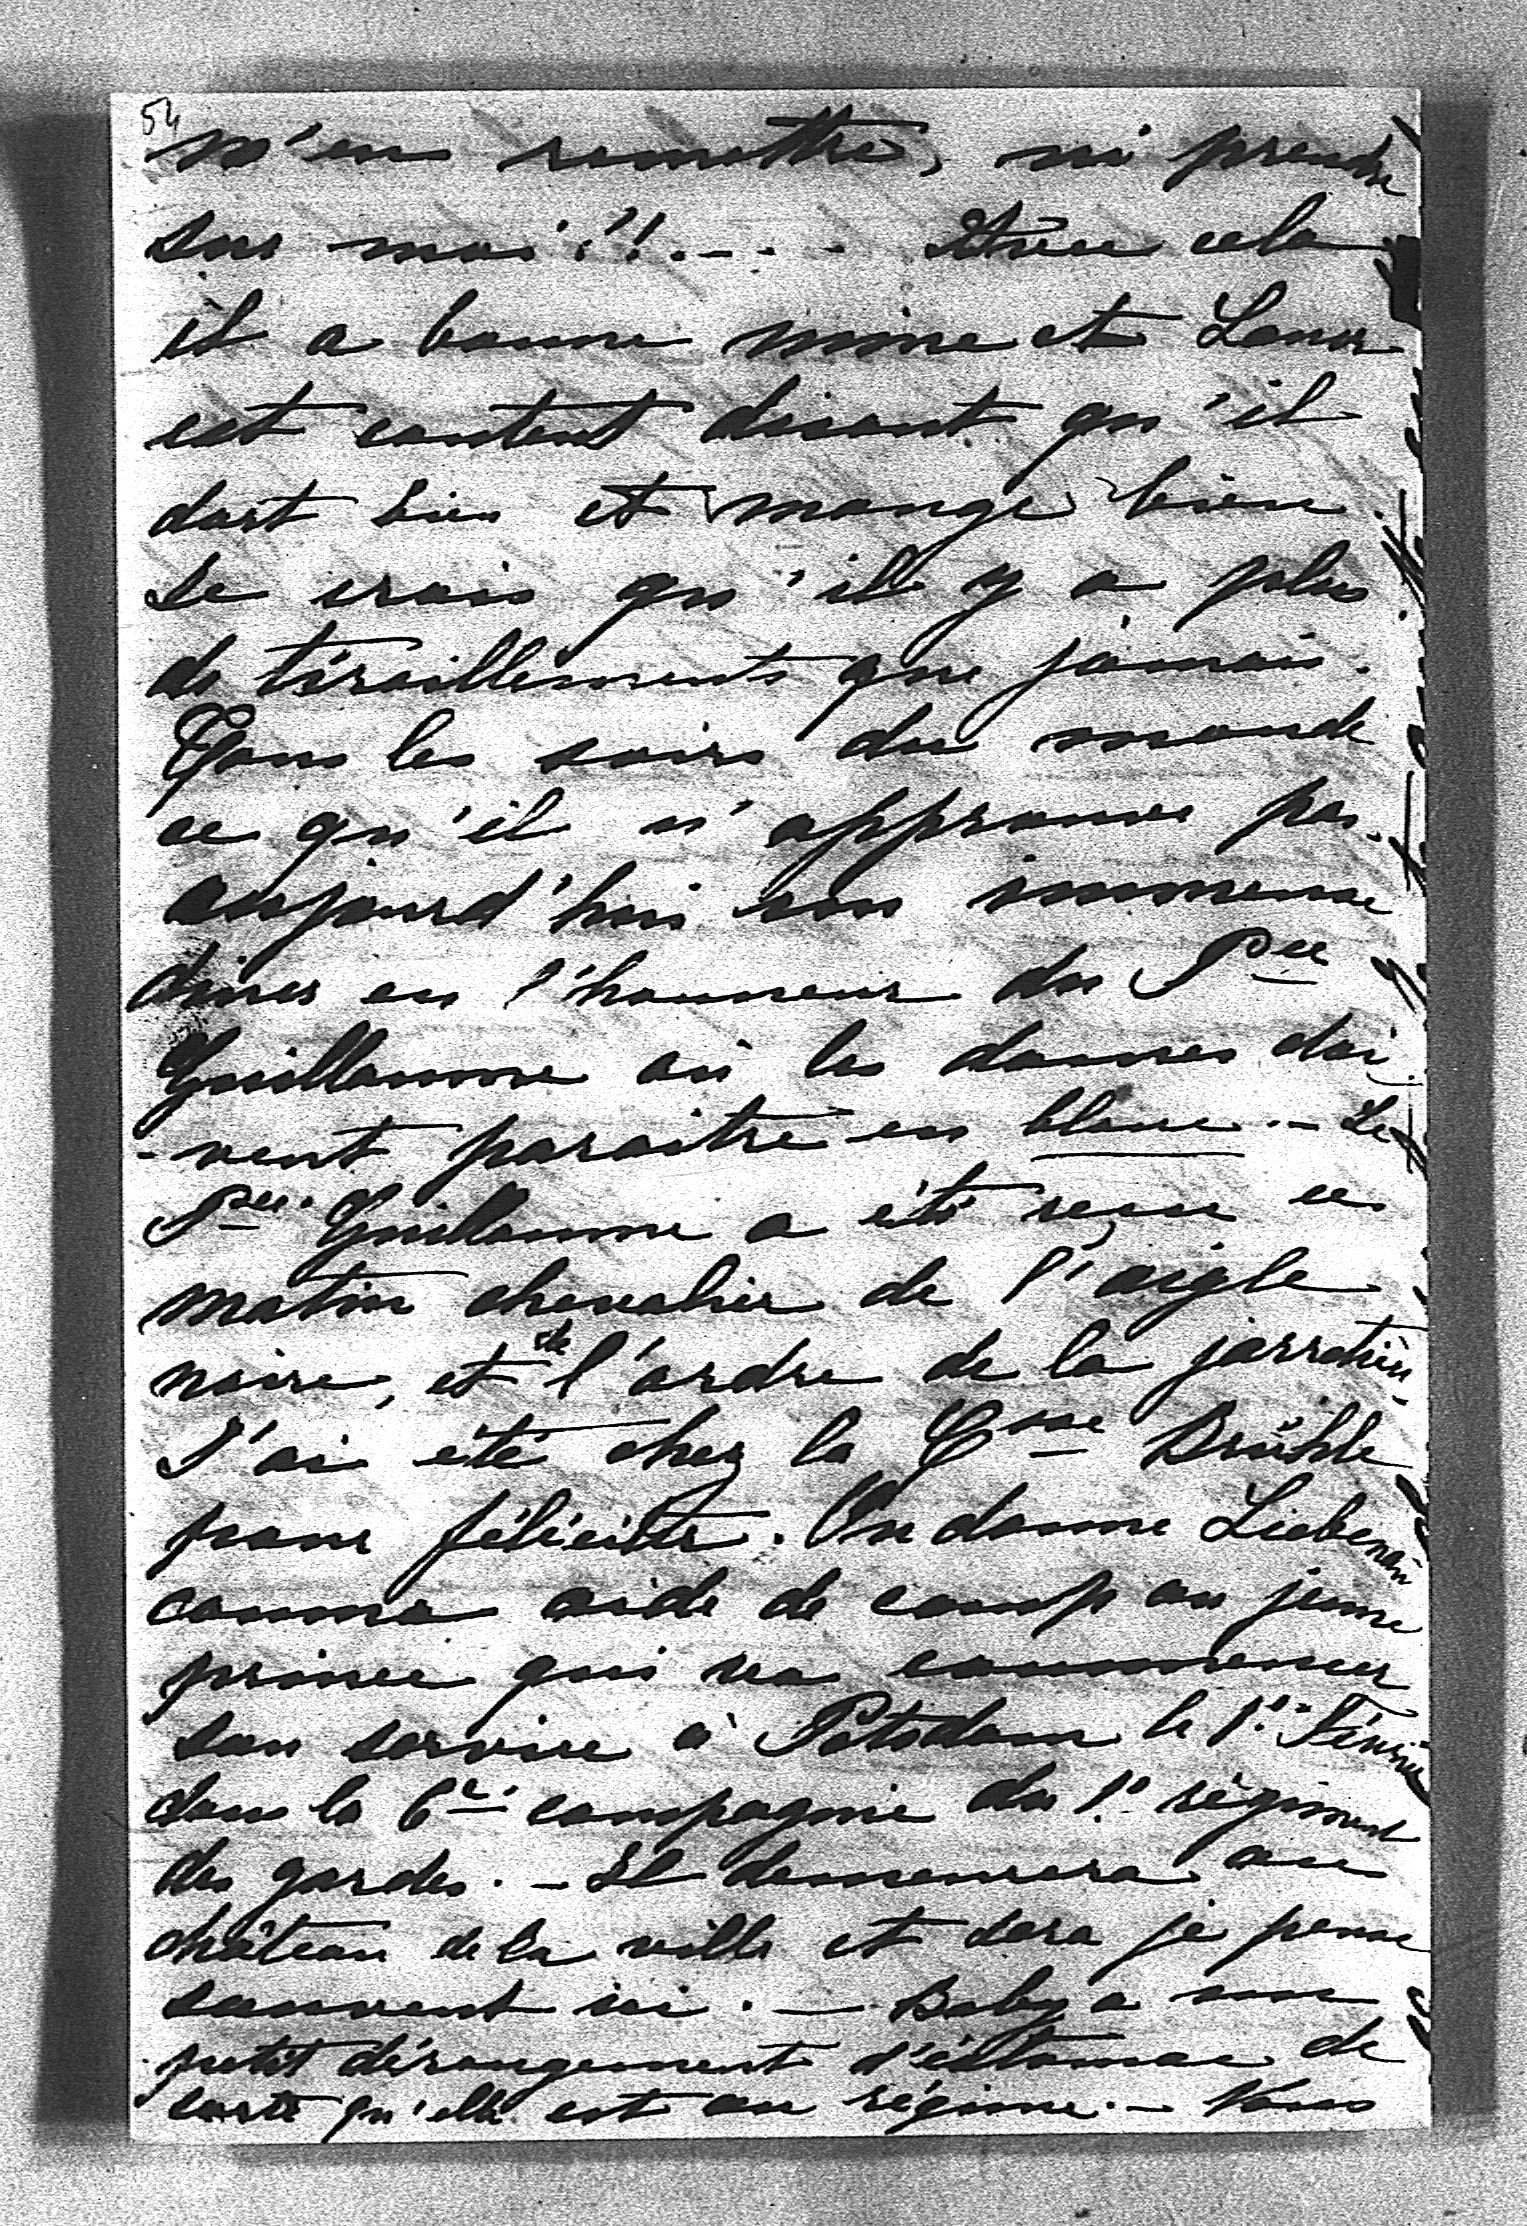 54
m'en remettre, ni prendre
sur moi!!!.--- Avec cela
il a bonne mine et Lauer
est content disant qu'il
dort bien et mange bien.
Je crois qu'il y a plus
de tiraillements que jamais.
Tous les soirs du monde
ce qu'il n'approuve pas.
aujourd'hui un immense
diner en l'honneur du Pce
Guillaume où les dames doi
-vent paraitre en blanc. - Le
Pce Guillaume a été reçu ce
matin chevalier de l'aigle
noire, et de l'ordre de la jarretière.
J'ai été chez la Csse Brühle
pour féliciter. On donne Liebenau
comme aide de camp au jeune
prince qui va commencer
son service à Potsdam le 1er Février
dans la 6me compagnie du 1er régiment
des gardes. - Il demeurera au
château de la ville et sera je pense
souvent ici. - Baby a un
petit dérangement d'estomac de
sorte qu'elle est au régime. - Vous